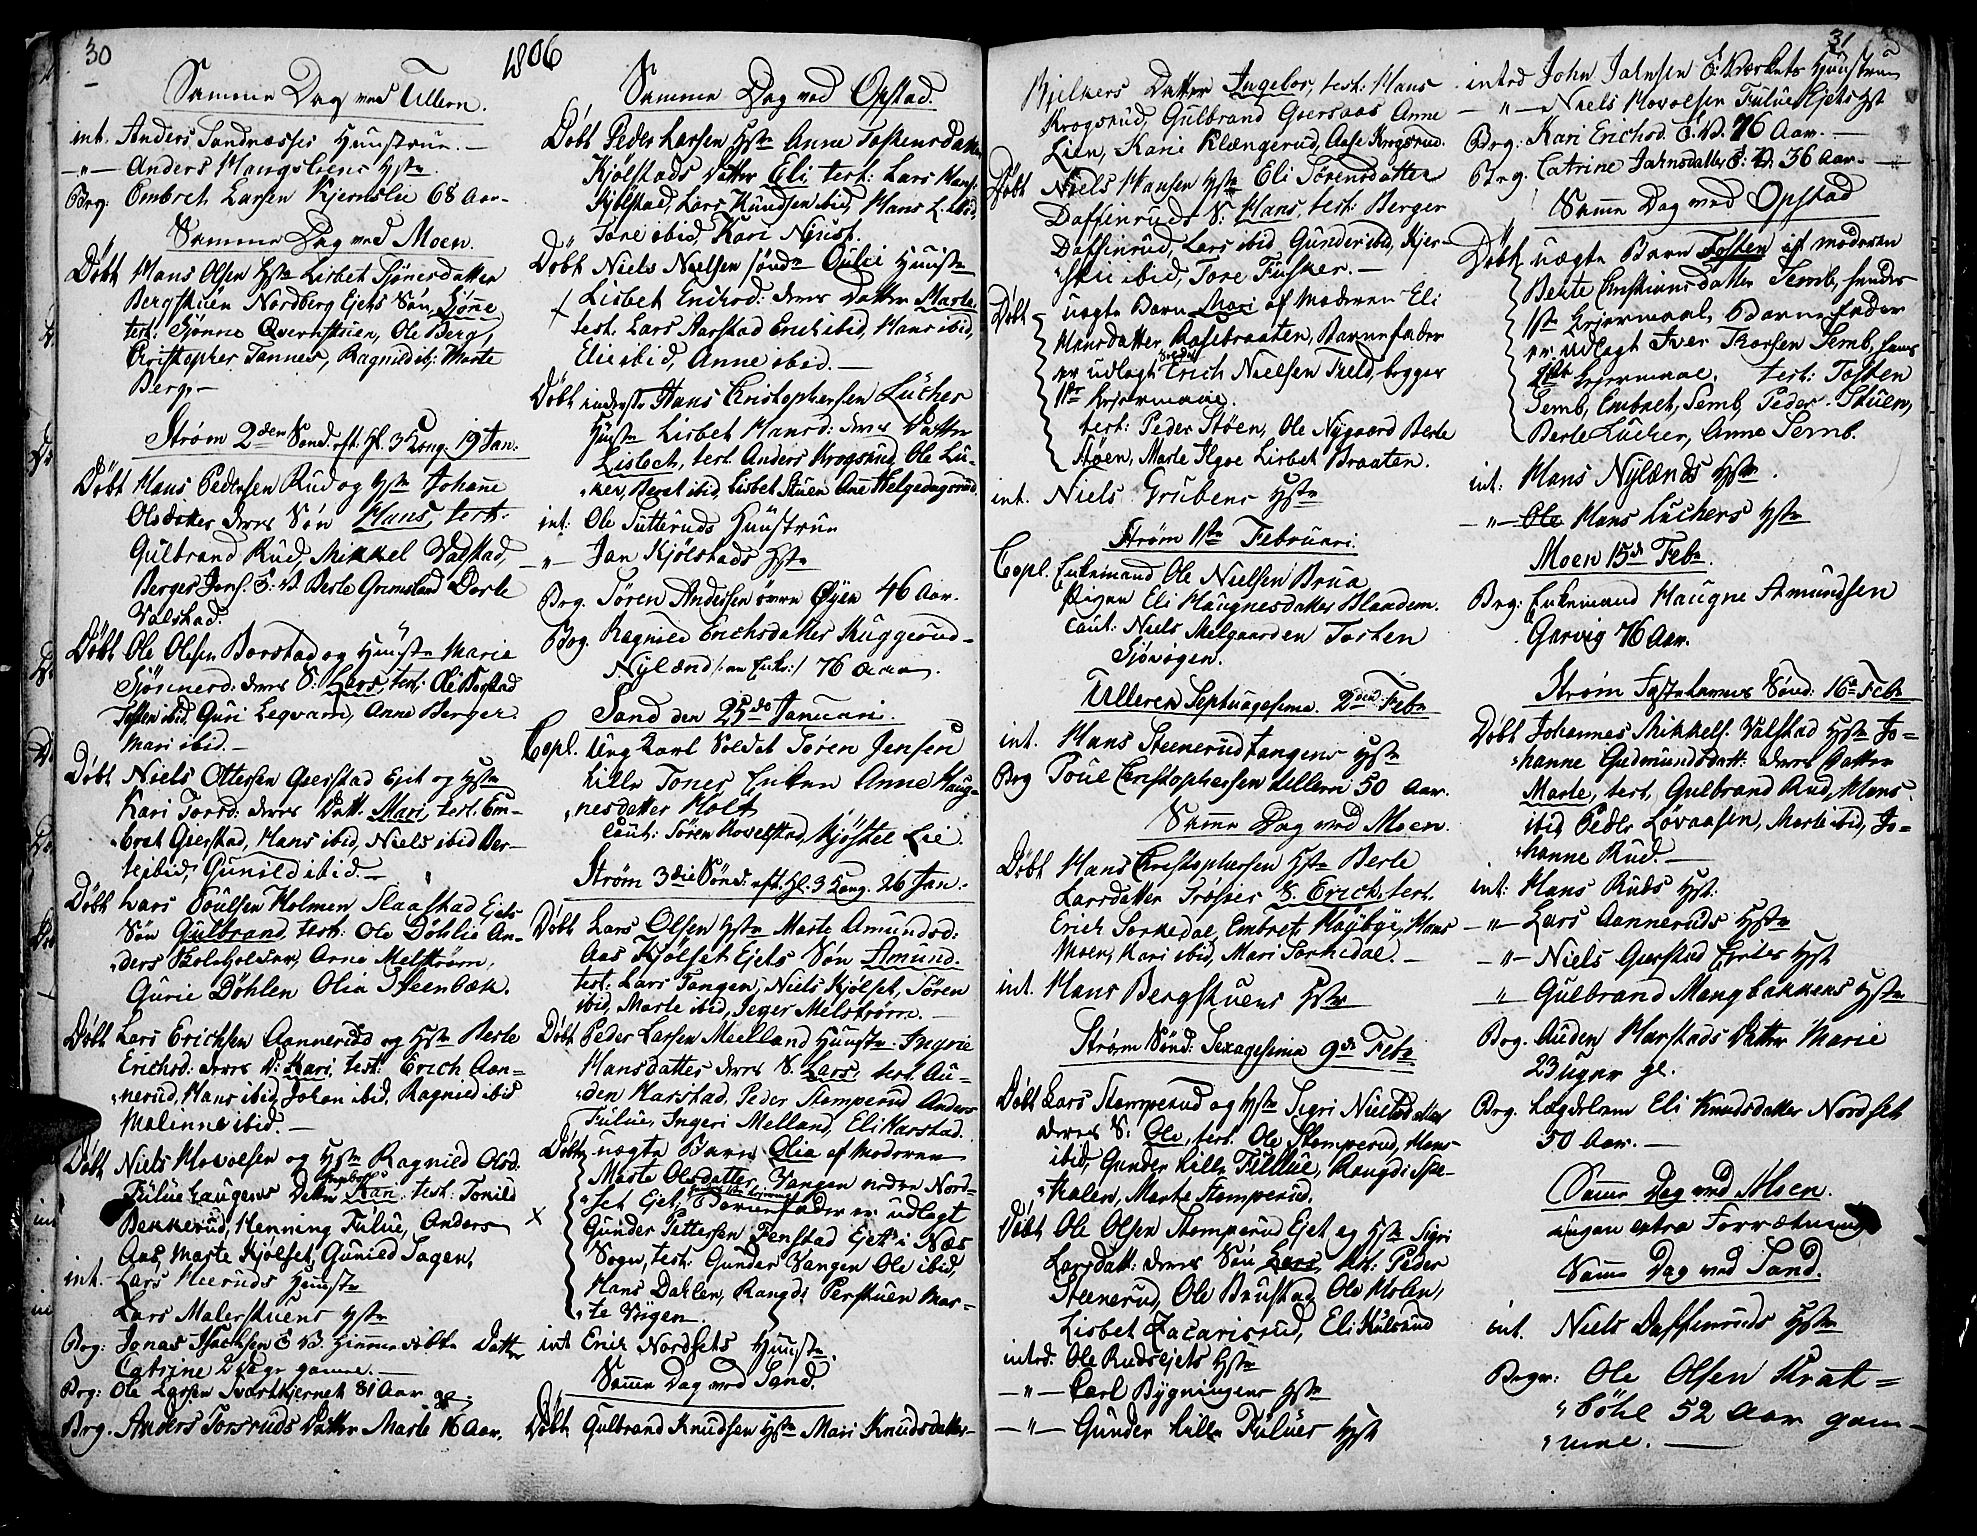 30
1806
Samme Dag ved Ullern.
int. Anders Sandnæsses Huustrue. —
—"— Anders Haugsliens Hstr.
Brg: Embret Larsen Kjernslie 68 Aar.
Samme Dag ved Moen.
Døbt Hans Olsen Hstr Lisbet Siønersdatter
Bergskuen Nordberg Ejets Søn Siønne
test: Siønne Ole Berg,
Christopher Tannes, Ragnild ibid, Marte
Berg. —
Strøm 2den Sønd. eft. Hl. 3 Kong. 19 Jan.
Døbt Hans Pedersen Rud og Hstr Johanne
Olsdatter deres Søn Hans, test:
Gulbrand Rud, Mikkel Valstad,
Berger Jens. E. V. Berte Grimsland Dorte
Valstad.
Døbt Ole Olsen Borstad og Huustr Marie
Siønnersd: deres S: Lars, test: Ole Borstad
Tosten ibid, Guri Legvam, Anne Berger.
Mari ibid. —
Døbt Niels Ottersen Gierstad Ejet og Hstr
Kari Tord: deres Datt. Mari, test. Em-
bret Gierstad, Hans ibid, Niels ibid Ber-
te ibid, Gunild ibid. —
Døbt Lars Poulsen Holmen Slaastad Ejets
Søn Gulbrand, test: Ole Døhlie An-
ders Arne Melstrøm,
Gurie Døhlen Olia Steenbæk.
Døbt Lars Erichsen Aannerud og Hstr Berte
Erichsd: deres D: Kari, test: Erich Aan-
nerud, Hans ibid, Johan ibid, Ragnild ibid
Malenne ibid. —
Døbt Niels Hovelsen og Hstr Ragnild Olsd.
Fulue haugens Datter Ingebor test: Tonild
Bekkerud, Henning Fulue, Anders
Aas, Marte Kjølset, Gunild Sagen,
int. Lars Heeruds Huustr
Lars Malerskuens Hstr
Brg: Jonas Isachsen E V. Datter
Catrine 2 Dage gamle. —
Brg: Ole Larsen Svartkjernet 81 Aar
Brg. Anders Torsruds Datter Marte 16 Aar.
Samme Dag ved Opstad.
Døbt Peder Larsen Hstr Anne Tostensdatter
Kjølstads Datter Eli test: Lars Hans.
Kjølstad, Lars Knudsen ibid, Hans L. ibid,
Tore ibid, Kari Nyust.
Døbt Niels Nielsen søndr Oulie Huustr
Lisbet Erichsd: deres Datter Marte
test. Lars Aarstad Erich ibid, Hans ibid,
Elie ibid, Anne ibid. —
Døbt inderste Hans Christophersen Lucher
Huustr Lisbet Hansd: deres Datter
Lisbeth, test. Anders Krogsrud Ole Lu-
ker, Beret ibid, Lisbet Stuen Ane Helgedagsrud.
int: Ole Sutteruds Huustrue
—"— Jan Kjølstads Hstr
Brg. Søren Andersen øvre Øyen 46 Aar.
Brg. Ragnild Erichsdatter Muggerud-
Nylænd /: en Enke :/ 76 Aar.
Sand den 25de Januari.
Copl. Ung Karl Soldat Søren Jensen
Lille Tones Enken Anne Haug-
nesdatter Holt
Caut: Søren Hovelstad, Kjøstel Lie.
Strøm 3die Sønd: eft. Hl. 3 Kong. 26 Jan:
Døbt Lars Olsen Hstr Marte Amundsd:
Aas Kjølset Ejets Søn Amund.
test: Lars Tangen, Niels Kjølset, Søren
ibid, Marte ibid, Inger Melstrøm. —
Døbt Peder Larsen Meelland Huustr: Ingrie
Hansdatter deres S. Lars, test: Au-
den Harstad, Peder Stomperud Anders
Fulue, Ingeri Melland, Eli Harstad.
Døbt uægte Barn Olia af Moderen
Marte Olsdatter Vangen neder Nord-
set Ejet, Barnefader er udlagt
Gunder Pettersen Fenstad Ejet i Næs
Sogn, test: Gunder Vangen Ole ibid,
Hans Dahlen, Rangdi Perskuen Mar-
te Viigen.
int Erich Nordsets Huustr.
Samme Dag ved Sand.
Døbt Gulbrand Knudsen Hstr Mari Knudsdatter-
31
Bjelkers Datter Ingebor, test: Hans
Krogsrud, Gulbrand Goersaas Anne
Lien, Karie Klængerud, Aase Krogsrud.
Døbt Niels Hansen Hstr Eli Sørensdatter
Daffinruds S: Hans, test: Berger
Daffinrud, Lars ibid, Gunder ibid, Kjer-
stie ibid, Tore Fusker. —
Døbt uægte Barn Mari af Moderen Eli
Hansdatter Rasebraaten, Barnefader
er udlagt Erich Nielsen Træld, begges
1ste Lejermaal.
test: Peder Støen, Ole Nygaard Berte
Støen, Marte Ilgoe Lisbet Braaten.
int. Niels Grubens Hstr
Strøm 1ste Februari.
Copl. Enkemand Ole Nielsen Brua
Pigen Eli Haugnesdatter Blaadem.
Caut: Niels Melgaarden Tosten
Siøvøgen.
Ulleren Septuagesima. 2den Febr
int. Hans Steenerudtangens Hstr
Brg Poul Christophersen Ullern 50 Aar.
Samme Dag ved Moen.
Døbt Hans Christophersen Hstr Berte
Larsdatter Grøsies S. Erich, test.
Erich Torkedal, Embret Høybye, Hans
Moen, Kari ibid, Mari Torkedal. —
int. Hans Bergskuens Hstr
Strøm Sønd: Sexagesima 9de Febr
Døbt Lars Stomperud og Hstr Sigri Nielsdatter
deres S: Ole, test. Ole Stomperud, Hans
ibid, Gunder Lille Fulue, Rangdi Spe-
kalen, Marte Stomperud.
Døbt Ole Olsen Stomperud Ejet og Hstr Sigri
Larsdatt: deres Søn Lars, test: Peder
Steenerud, Ole Brustad Ole Molen,
Lisbet Zacarisrud, Eli Kulsrud
introd. Ole Rudsejets Hstr
—"— Carl Bygningens Hstr
—"— Gunder Lille Fulues Hstr
introd John Jahnsen E: Værkets Huustrue
—"— Niels Hovelsen Fulue Ejets Hst
Brg: Kari Erichsd. E. V. 76 Aar. —
Brg. Catrine Jahnsdatter E: V. 36 Aar. —
Samme Dag ved Opstad
Døbt uægte Barn Tosten af Moderen
Berte Christiansdatter Semb, hendes
1ste Lejermaal, Barnefader
er udlagt Iver Thorsen Semb, hans
2det Lejermaal, test: Tosten
Semb, Embret, Semb, Peder Stuen,
Berte Lucher, Anne Semb.
int: Hans Nylænds Hstr.
—"— Ole Hans Luchers Hstr
Moen 15de Febr.
Brg: Enkemand Haugne Amundsen
Garvig 76 Aar.
Strøm Fastelavens Sønd: 16de Febr
Døbt Johannes Mikkels. Valstad Hstr Jo-
hanne Gudmundsdatt: deres Datter
Marte, test. Gulbrand Rud, Hans
ibid, Peder Løvaasen, Marte ibid, Jo-
hanne Rud. —
int: Hans Ruds Hst.
—"— Lars Aanneruds Hstr
—"— Niels Gierstad Ejets Hst
"— Gulbrand Mangbakkens Hstr
Brg. Auden Harstads Datter Marie
23 uger gl.
Brg. Lægdslem Eli Knudsdatter Nordset
50 Aar. —
Samme Dag ved Moen.
ingen extra Forrætning
Samme Dag ved Sand.
int. Niels Daffinruds Hstr
Begr: Ole Olsen Krak=
bøhl 52 Aar gam-
mel. —